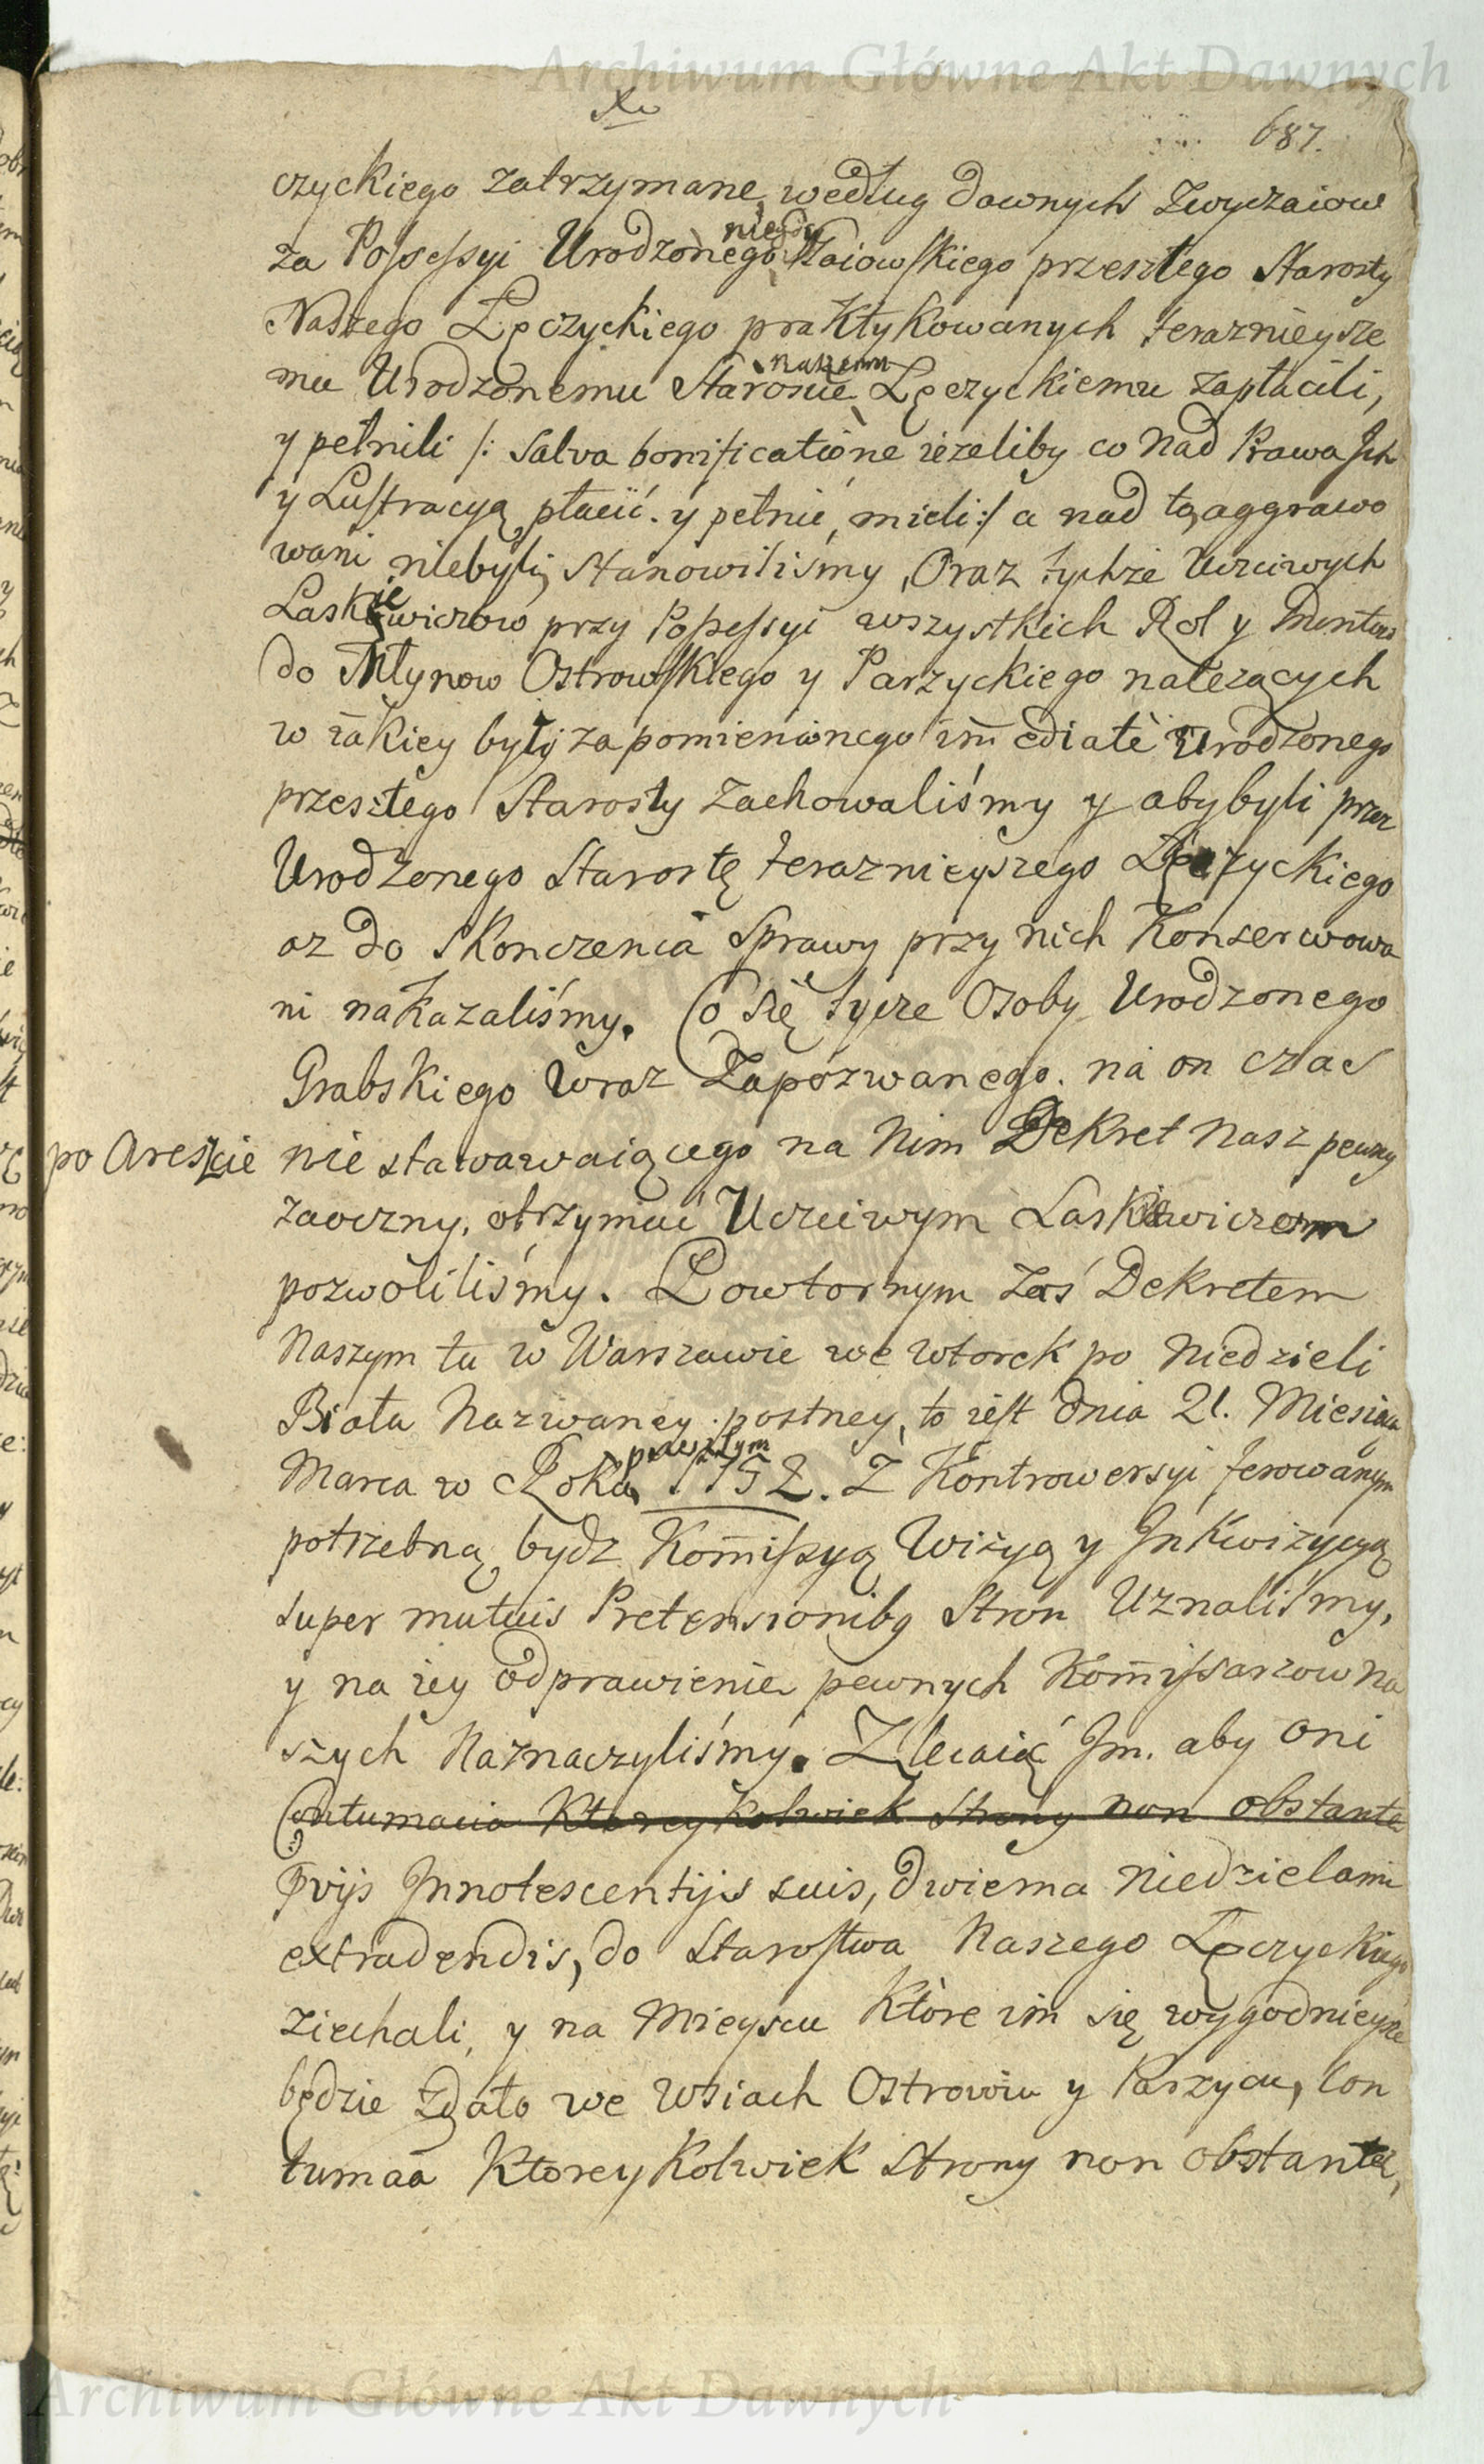 Archiwum Główne Akt Dawnych
687.
czyckiego zatrzymane, według dawnych zwyczaiow
niegdy
za Possessyi Urodzonego Szaiowskiego przeszłego Starosty
Naszego Łęczyckiego praktykowanych teraznieysze
naszemu
mu Urodzonemu Staroscie Łęczyckiemu zapłacili,
y pełnili /: Salva bonificatione ieżeliby co nad Prawa Ich
y Lustracyą płacić y pełnić, mieli :/ a nad to aggrawo
wani niebyli, stanowiliśmy, Oraz tychże Uczciwych
Laskiewiczow przy Possessyi wszystkich Rol y
do Młynow Ostrowskiego y Parzyckiego należących
w iakiey byli za pomienionego im̄ediate Urodzonego
przeszłego Starosty zachowaliśmy y aby byli przez
Urodzonego Starostę teraznieyszego Łęczyckiego
az do skonczenia Sprawy przy nich Konserwowa
ni nakazaliśmy. Co się tycze Osoby Urodzonego
Grabskiego wraz Zapozwanego. na on czas
po Areszcie nie stawawaiącego na Nim Dekret Nasz pewny
zaoczny, otrzymać Uczciwym Laskiewiczom
pozwoliliśmy. Powtornym zaś Dekretem
Naszym tu w Warszawie we wtorek po Niedzieli
Biała Nazwaney postney, to iest dnia 21. Miesiąca
przeszłym
Marca w Roku 1752. Z Kontrowersyi ferowanym
potrzebną bydz Kom̄issyą Wizyą y Inkwizycyą
super mutuis Pretensionibg Stron Uznaliśmy,
y na iey odprawienie pewnych Kom̄issarzow Na
szych Naznaczyliśmy. Zlecaiąc Im. aby oni
Contumacia Ktoreykolwiek Strony non obstante
Prvijs Innotescentijs suis, dwiema Niedzielami
extradendis, do Starostwa Naszego Łęczyckiego
ziechali, y na Mieyscu Które im się wygodnieysze
będzie zdało we Wsiach Ostrowiu y Parzycu, Con
tumaa Ktoreykolwiek Strony non obstante,
Archiwum Główne Akt Dawnych